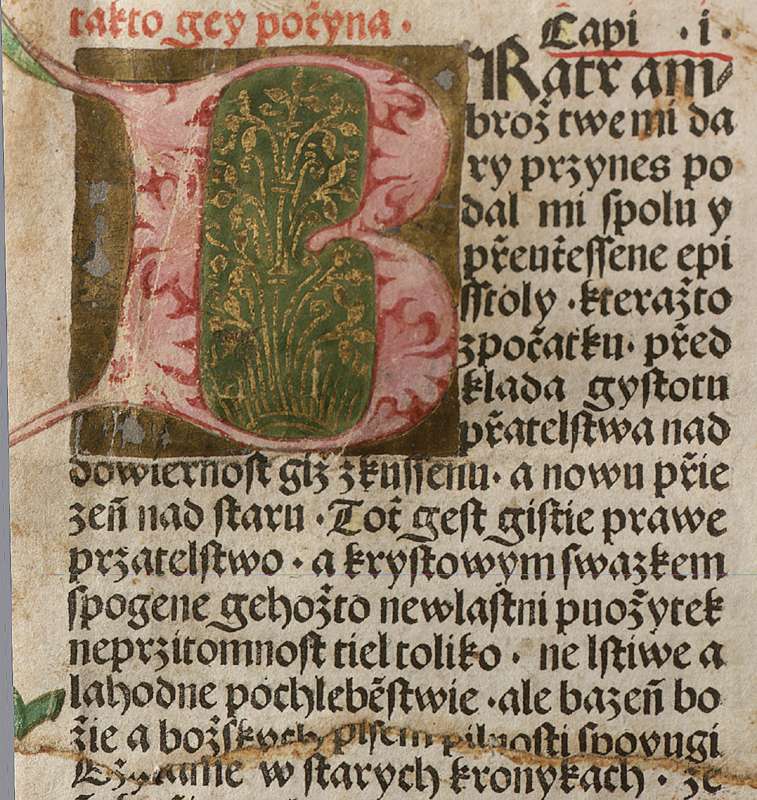 takto gey počyna ·
Capi · i ·
B Ratr am
brož twe mi da
ry przynes po
dal mi spolu y
přeutěssene epi
sstoly · kteražto
zpočatku · před
klada gystotu
přatelstwa nad
dowiernost giž zkussenu · a nowu přie
zeň nad staru · Toť gest gistie prawe
przatelstwo · a krystowym swazkem
spogene gehožto newlastni puožytek
neprzitomnost tiel toliko · ne lstiwe a
lahodne pochlebēstwie · ale bazeň bo
žie a božskych pisem pilnosti spovugi
w starych kronykach · že